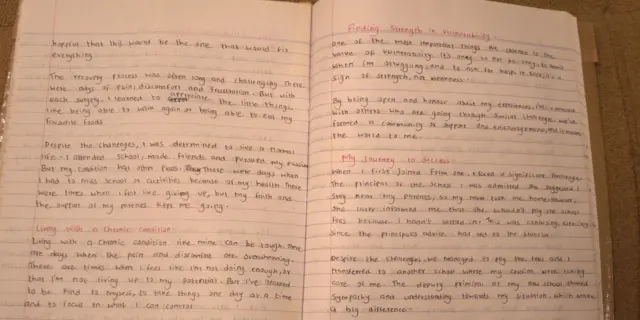 hopeful that this would be the one that would fix
everything.
The recovery process was often long and challenging. There
were days of pain, discomfort and frustration. But with
each surgery, I learned to appreciate the little things
like being able to walk again or being able to eat my
favourite foods.
Despite the challenges, I was determined to live a normal
life. I attended school, made friends and pursued my
But my condition had other plans. There were days when
I had to miss school or activities because of my health. There
were times when I felt like giving up, but my faith and
the support of my kept me going.
Living with a Chronic Condition
Living with a chronic condition like mine can be tough. There
are days when the pain and discomfort are overwhelming.
There are times when I feel like I'm not doing enough, or
that I'm not living up to my potential. But I've learned
to be kind to myself, to take things one day at a time
and to focus on what I can control.
Finding Strength in Vulnerability
One of the most important things I've learned is the
value of vulnerability. It's okay to not be okay, to
when I'm struggling, and to ask for help is
sign of strength, not weakness.
By being open and honest about my experiences, I've connected
with others who are going through similar challenges. We've
formed a community of support and encouragement, this means
the world to me.
My Journey to Success
When I first joined Form one, I faced a significant challenge.
The principal of the school I was admitted to suggested I
stay near my parents, so my mum took me home. However,
she later informed me that she wouldn't pay the school
fees because I hadn't This was confusing,
since the principal's advice had led to the
Despite the challenges, we managed to pay the fees and I
transferred to another school where my cousin were taking
care of me. The deputy principal at my new school showed
sympathy and understanding towards my situation, which made
a big difference.